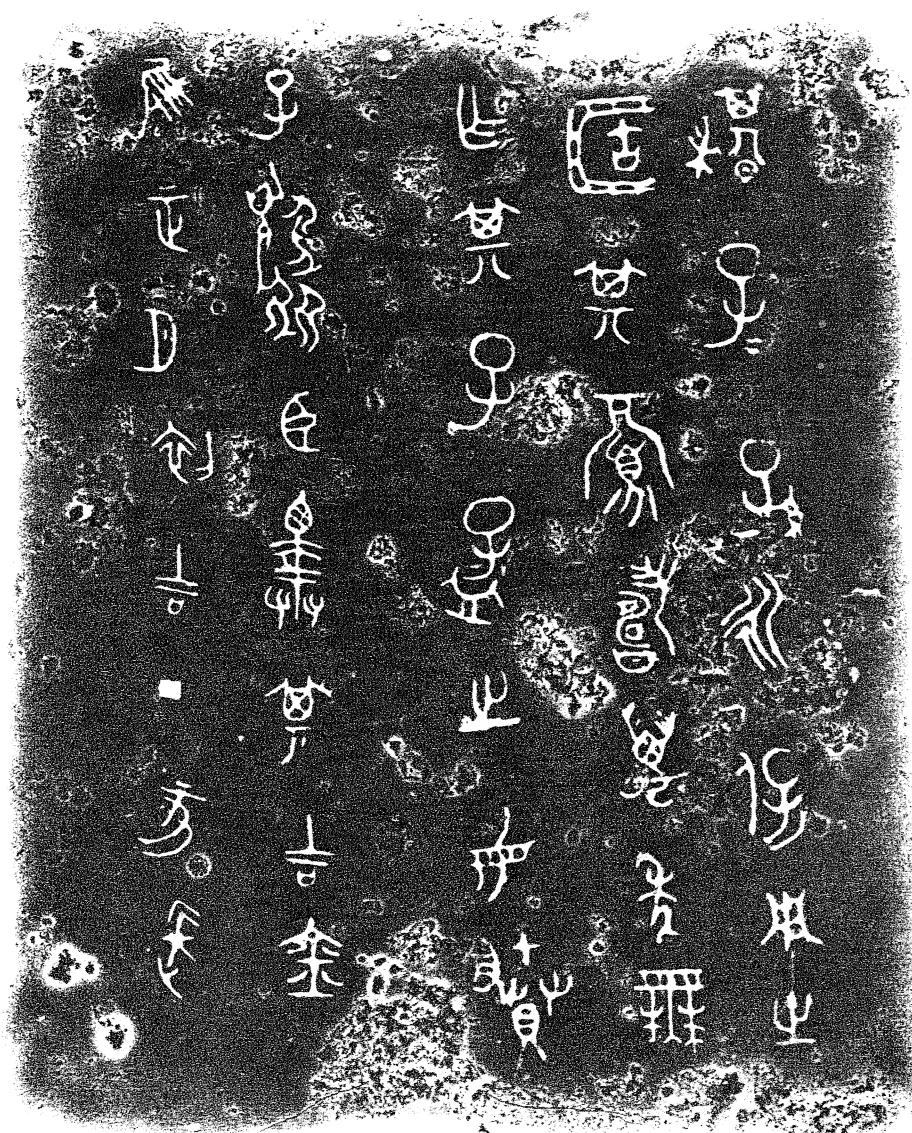 隹正月初吉丁亥長
子臣擇其吉金
乍其子孟之母媵
匠其眉壽萬年無
期子=孫=永保用之